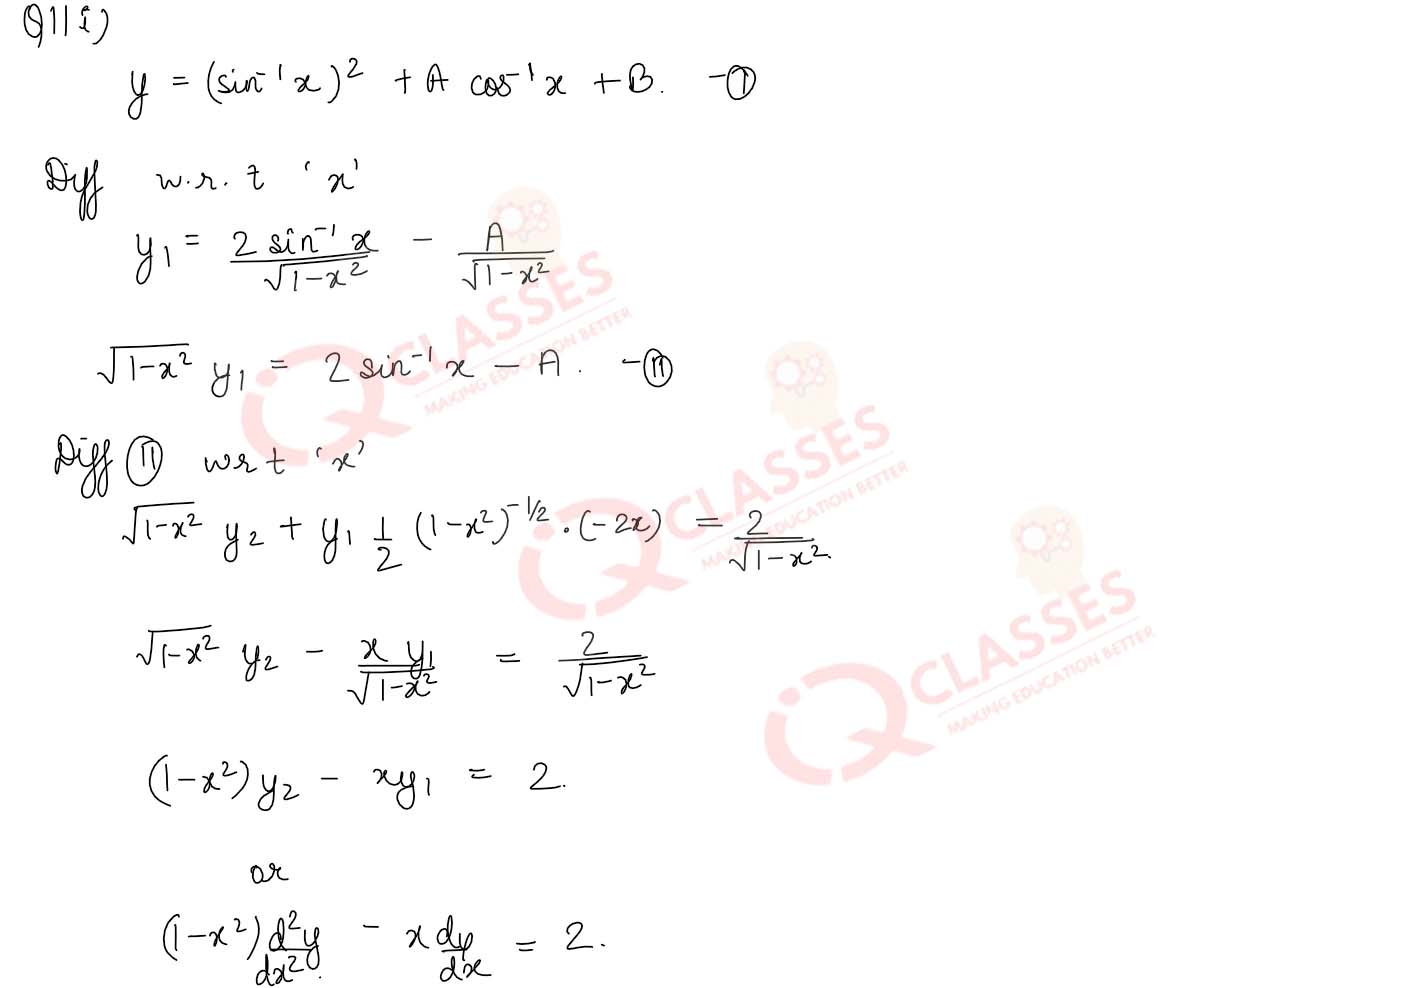 Q11 i)
y = (sin⁻¹x)² + A cos⁻¹x + B. -Ⓘ
Diff w.r.t 'x'
y₁ = 2 sin⁻¹x / √(1-x²) - A / √(1-x²)
√(1-x²) y₁ = 2 sin⁻¹x - A. -(II)
Diff (II) wrt 'x'
√(1-x²) y₂ + y₁ 1/2 (1-x²)^(-1/2) · (-2x) = 2 / √(1-x²).
√(1-x²) y₂ - x y₁ / √(1-x²) = 2 / √(1-x²)
(1-x²) y₂ - xy₁ = 2.
or
(1-x²) d²y/dx² - x dy/dx = 2.
IQ CLASSES
MAKING EDUCATION BETTER
IQ CLASSES
MAKING EDUCATION BETTER
IQ CLASSES
MAKING EDUCATION BETTER